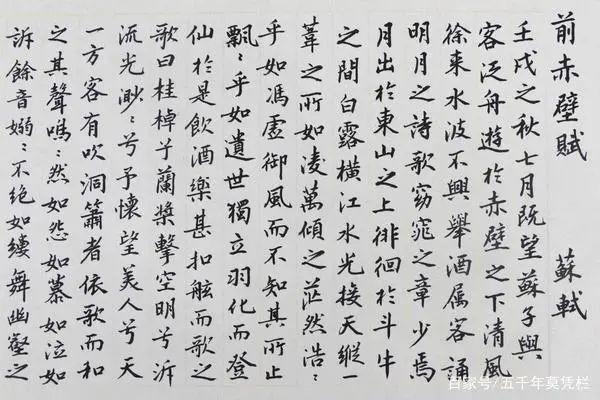 前赤壁賦 蘇軾
壬戌之秋七月既望蘇子與
客泛舟遊於赤壁之下清風
徐来水波不興舉酒属客誦
明月之詩歌窈窕之章少焉
月出於東山之上徘徊於斗牛
之間白露橫江水光接天縱一
葦之所如凌萬傾之茫然浩〻
乎如馮虛御風而不知其所止
飄〻乎如遺世獨立羽化而登
仙於是飲酒樂甚扣舷而歌之
歌曰桂棹兮蘭槳擊空明兮泝
流光渺〻兮予懷望美人兮天
一方客有吹洞簫者依歌而和
之其聲嗚〻然如怨如慕如泣如
訴餘音嫋〻不绝如縷舞幽壑之
百家号/五千年莫凭栏